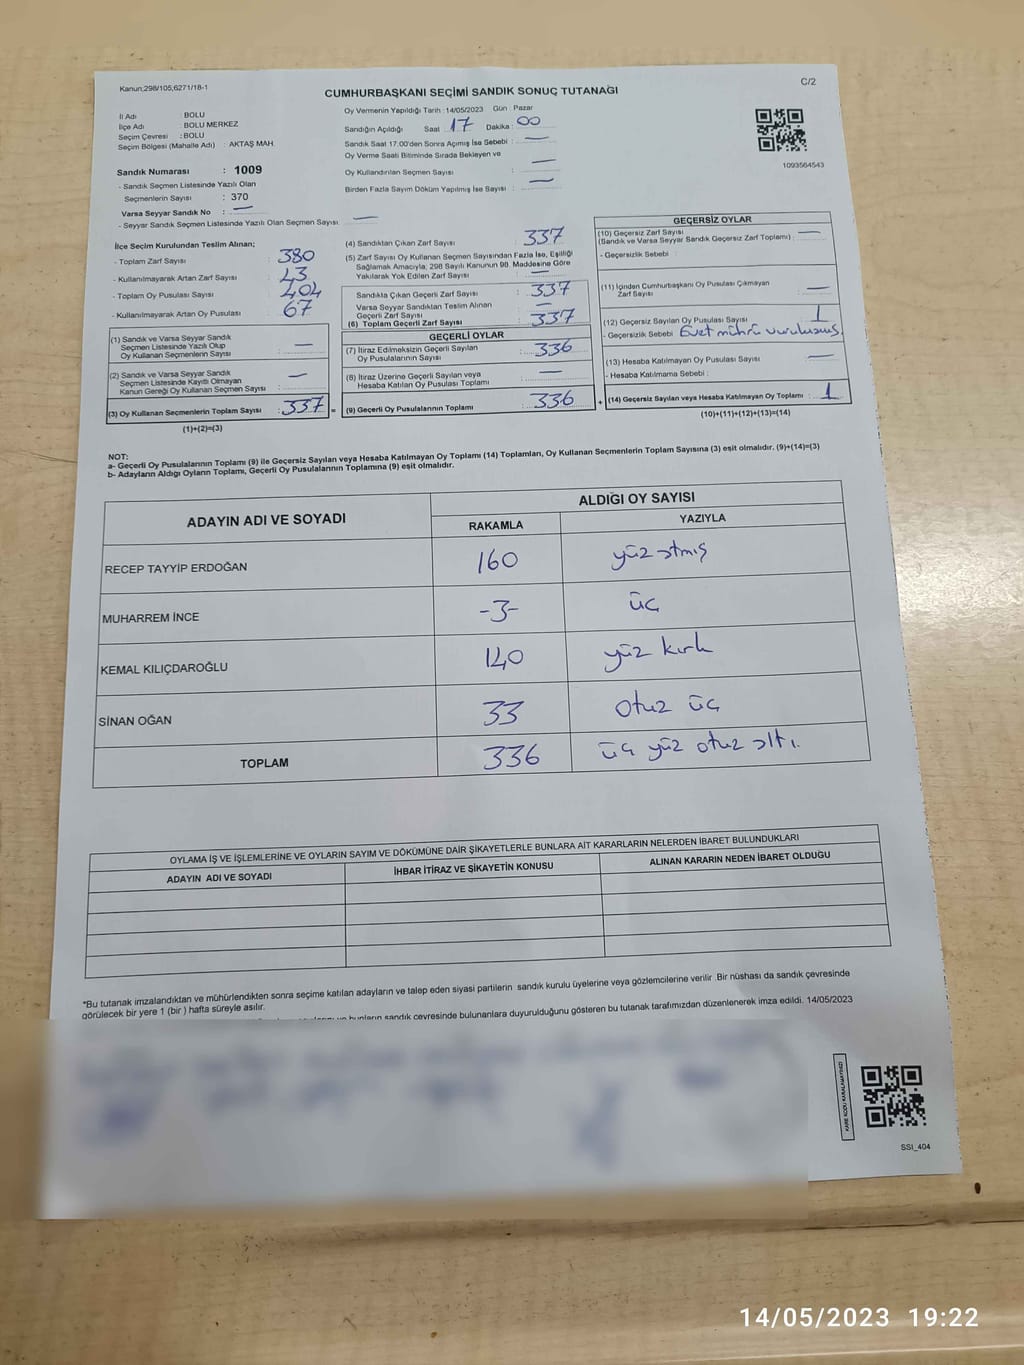 Kanun;298/105,6271/18-1
C/2
CUMHURBAŞKANI SEÇİMİ SANDIK SONUÇ TUTANAĞI
İl Adı : BOLU
İlçe Adı : BOLU MERKEZ
Seçim Çevresi : BOLU
Seçim Bölgesi (Mahalle Adı) : AKTAŞ MAH.
Sandık Numarası : 1009
- Sandık Seçmen Listesinde Yazılı Olan
Seçmenlerin Sayısı : 370
Varsa Seyyar Sandık No : —
- Seyyar Sandık Seçmen Listesinde Yazılı Olan Seçmen Sayısı —
Oy Vermenin Yapıldığı Tarih : 14/05/2023 Gün : Pazar
Sandığın Açıldığı Saat : 17 Dakika : 00
Sandık Saat 17.00'den Sonra Açımış İse Sebebi : —
Oy Verme Saati Bitiminde Sırada Bekleyen ve
Oy Kullandırılan Seçmen Sayısı : —
Birden Fazla Sayım Döküm Yapılmış İse Sayısı : —
1093564543
İlçe Seçim Kurulundan Teslim Alınan;
- Toplam Zarf Sayısı : 380
- Kullanılmayarak Artan Zarf Sayısı : 43
- Toplam Oy Pusulası Sayısı : 404
- Kullanılmayarak Artan Oy Pusulası : 67
(1) Sandık ve Varsa Seyyar Sandık
Seçmen Listesinde Yazılı Olup
Oy Kullanan Seçmenlerin Sayısı : —
(2) Sandık ve Varsa Seyyar Sandık
Seçmen Listesinde Kayıtlı Olmayan
Kanun Gereği Oy Kullanan Seçmen Sayısı : —
(3) Oy Kullanan Seçmenlerin Toplam Sayısı : 337 =
(1)+(2)=(3)
(4) Sandıktan Çıkan Zarf Sayısı : 337
(5) Zarf Sayısı Oy Kullanan Seçmen Sayısından Fazla İse, Eşitliği
Sağlamak Amacıyla; 298 Sayılı Kanunun 98. Maddesine Göre
Yakılarak Yok Edilen Zarf Sayısı : —
Sandıkta Çıkan Geçerli Zarf Sayısı : 337
Varsa Seyyar Sandıktan Teslim Alınan
Geçerli Zarf Sayısı : —
(6) Toplam Geçerli Zarf Sayısı : 337
GEÇERLİ OYLAR
(7) İtiraz Edilmeksizin Geçerli Sayılan
Oy Pusulalarının Sayısı : 336
(8) İtiraz Üzerine Geçerli Sayılan veya
Hesaba Katılan Oy Pusulası Toplamı : —
(9) Geçerli Oy Pusulalarının Toplamı : 336 +
GEÇERSİZ OYLAR
(10) Geçersiz Zarf Sayısı
(Sandık ve Varsa Seyyar Sandık Geçersiz Zarf Toplamı) : —
- Geçersizlik Sebebi :
(11) İçinden Cumhurbaşkanı Oy Pusulası Çıkmayan
Zarf Sayısı : —
(12) Geçersiz Sayılan Oy Pusulası Sayısı : 1
- Geçersizlik Sebebi : Evet mührü vurulmuş.
(13) Hesaba Katılmayan Oy Pusulası Sayısı : —
- Hesaba Katılmama Sebebi :
(14) Geçersiz Sayılan veya Hesaba Katılmayan Oy Toplamı : 1
(10)+(11)+(12)+(13)=(14)
NOT:
a- Geçerli Oy Pusulalarının Toplamı (9) ile Geçersiz Sayılan veya Hesaba Katılmayan Oy Toplamı (14) Toplamları, Oy Kullanan Seçmenlerin Toplam Sayısına (3) eşit olmalıdır. (9)+(14)=(3)
b- Adayların Aldığı Oyların Toplamı, Geçerli Oy Pusulalarının Toplamına (9) eşit olmalıdır.
ADAYIN ADI VE SOYADI
ALDIĞI OY SAYISI
RAKAMLA YAZIYLA
RECEP TAYYİP ERDOĞAN 160 yüz atmış
MUHARREM İNCE -3- üç
KEMAL KILIÇDAROĞLU 140 yüz kırk
SİNAN OĞAN 33 otuz üç
TOPLAM 336 üç yüz otuz altı.
OYLAMA İŞ VE İŞLEMLERİNE VE OYLARIN SAYIM VE DÖKÜMÜNE DAİR ŞİKAYETLERLE BUNLARA AİT KARARLARIN NELERDEN İBARET BULUNDUKLARI
ADAYIN ADI VE SOYADI İHBAR İTİRAZ VE ŞİKAYETİN KONUSU ALINAN KARARIN NEDEN İBARET OLDUĞU
*Bu tutanak imzalandıktan ve mühürlendikten sonra seçime katılan adayların ve talep eden siyasi partilerin sandık kurulu üyelerine veya gözlemcilerine verilir .Bir nüshası da sandık çevresinde
görülecek bir yere 1 (bir ) hafta süreyle asılır.
bunların sandık çevresinde bulunanlara duyurulduğunu gösteren bu tutanak tarafımızdan düzenlenerek imza edildi. 14/05/2023
KARE KODU KARALAMAYINIZ!
SSI_404
14/05/2023 19:22